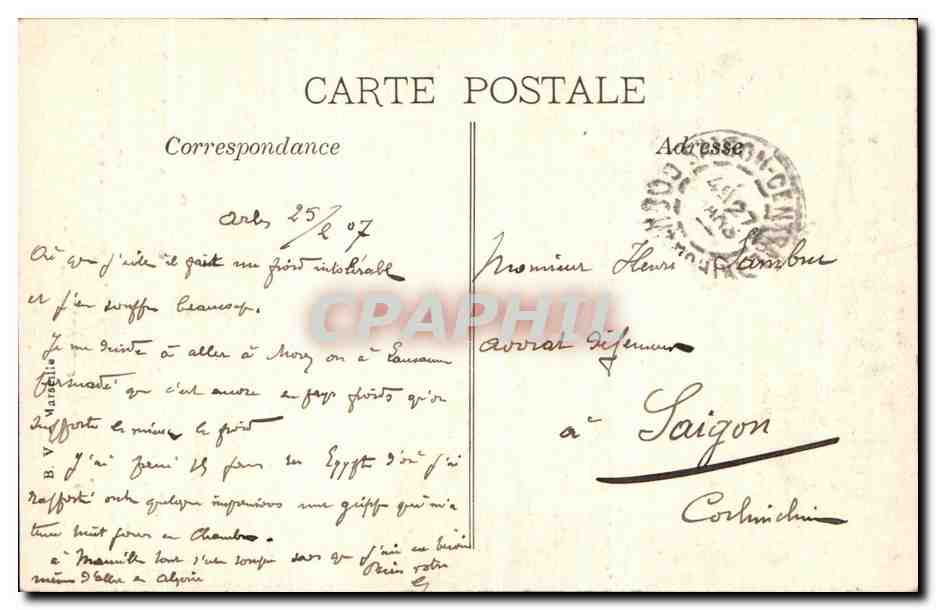 CARTE POSTALE
Correspondance
Adresse
Arles 25/2 07
Où que j'aille il fait un froid intolérable
et j'en souffre beaucoup.
Je me décide à aller à Morez ou à Lausanne
persuadé que c'est encore en pays froids qu'on
supporte le mieux le froid
J'ai passé 15 jours en Egypte d'où j'ai
rapporté outre quelques impressions une grippe qui m'a
tenu huit jours en chambre.
à Marseille tout s'est sans que j'ai eu besoin
même d'aller en Algérie
Bien votre
Monsieur Henri Sambuc
avocat défenseur
à Saigon
Cochinchine
B. V. Marseille
SAIGON-CENTRAL
27
COCHINCHINE
CPAPHIL